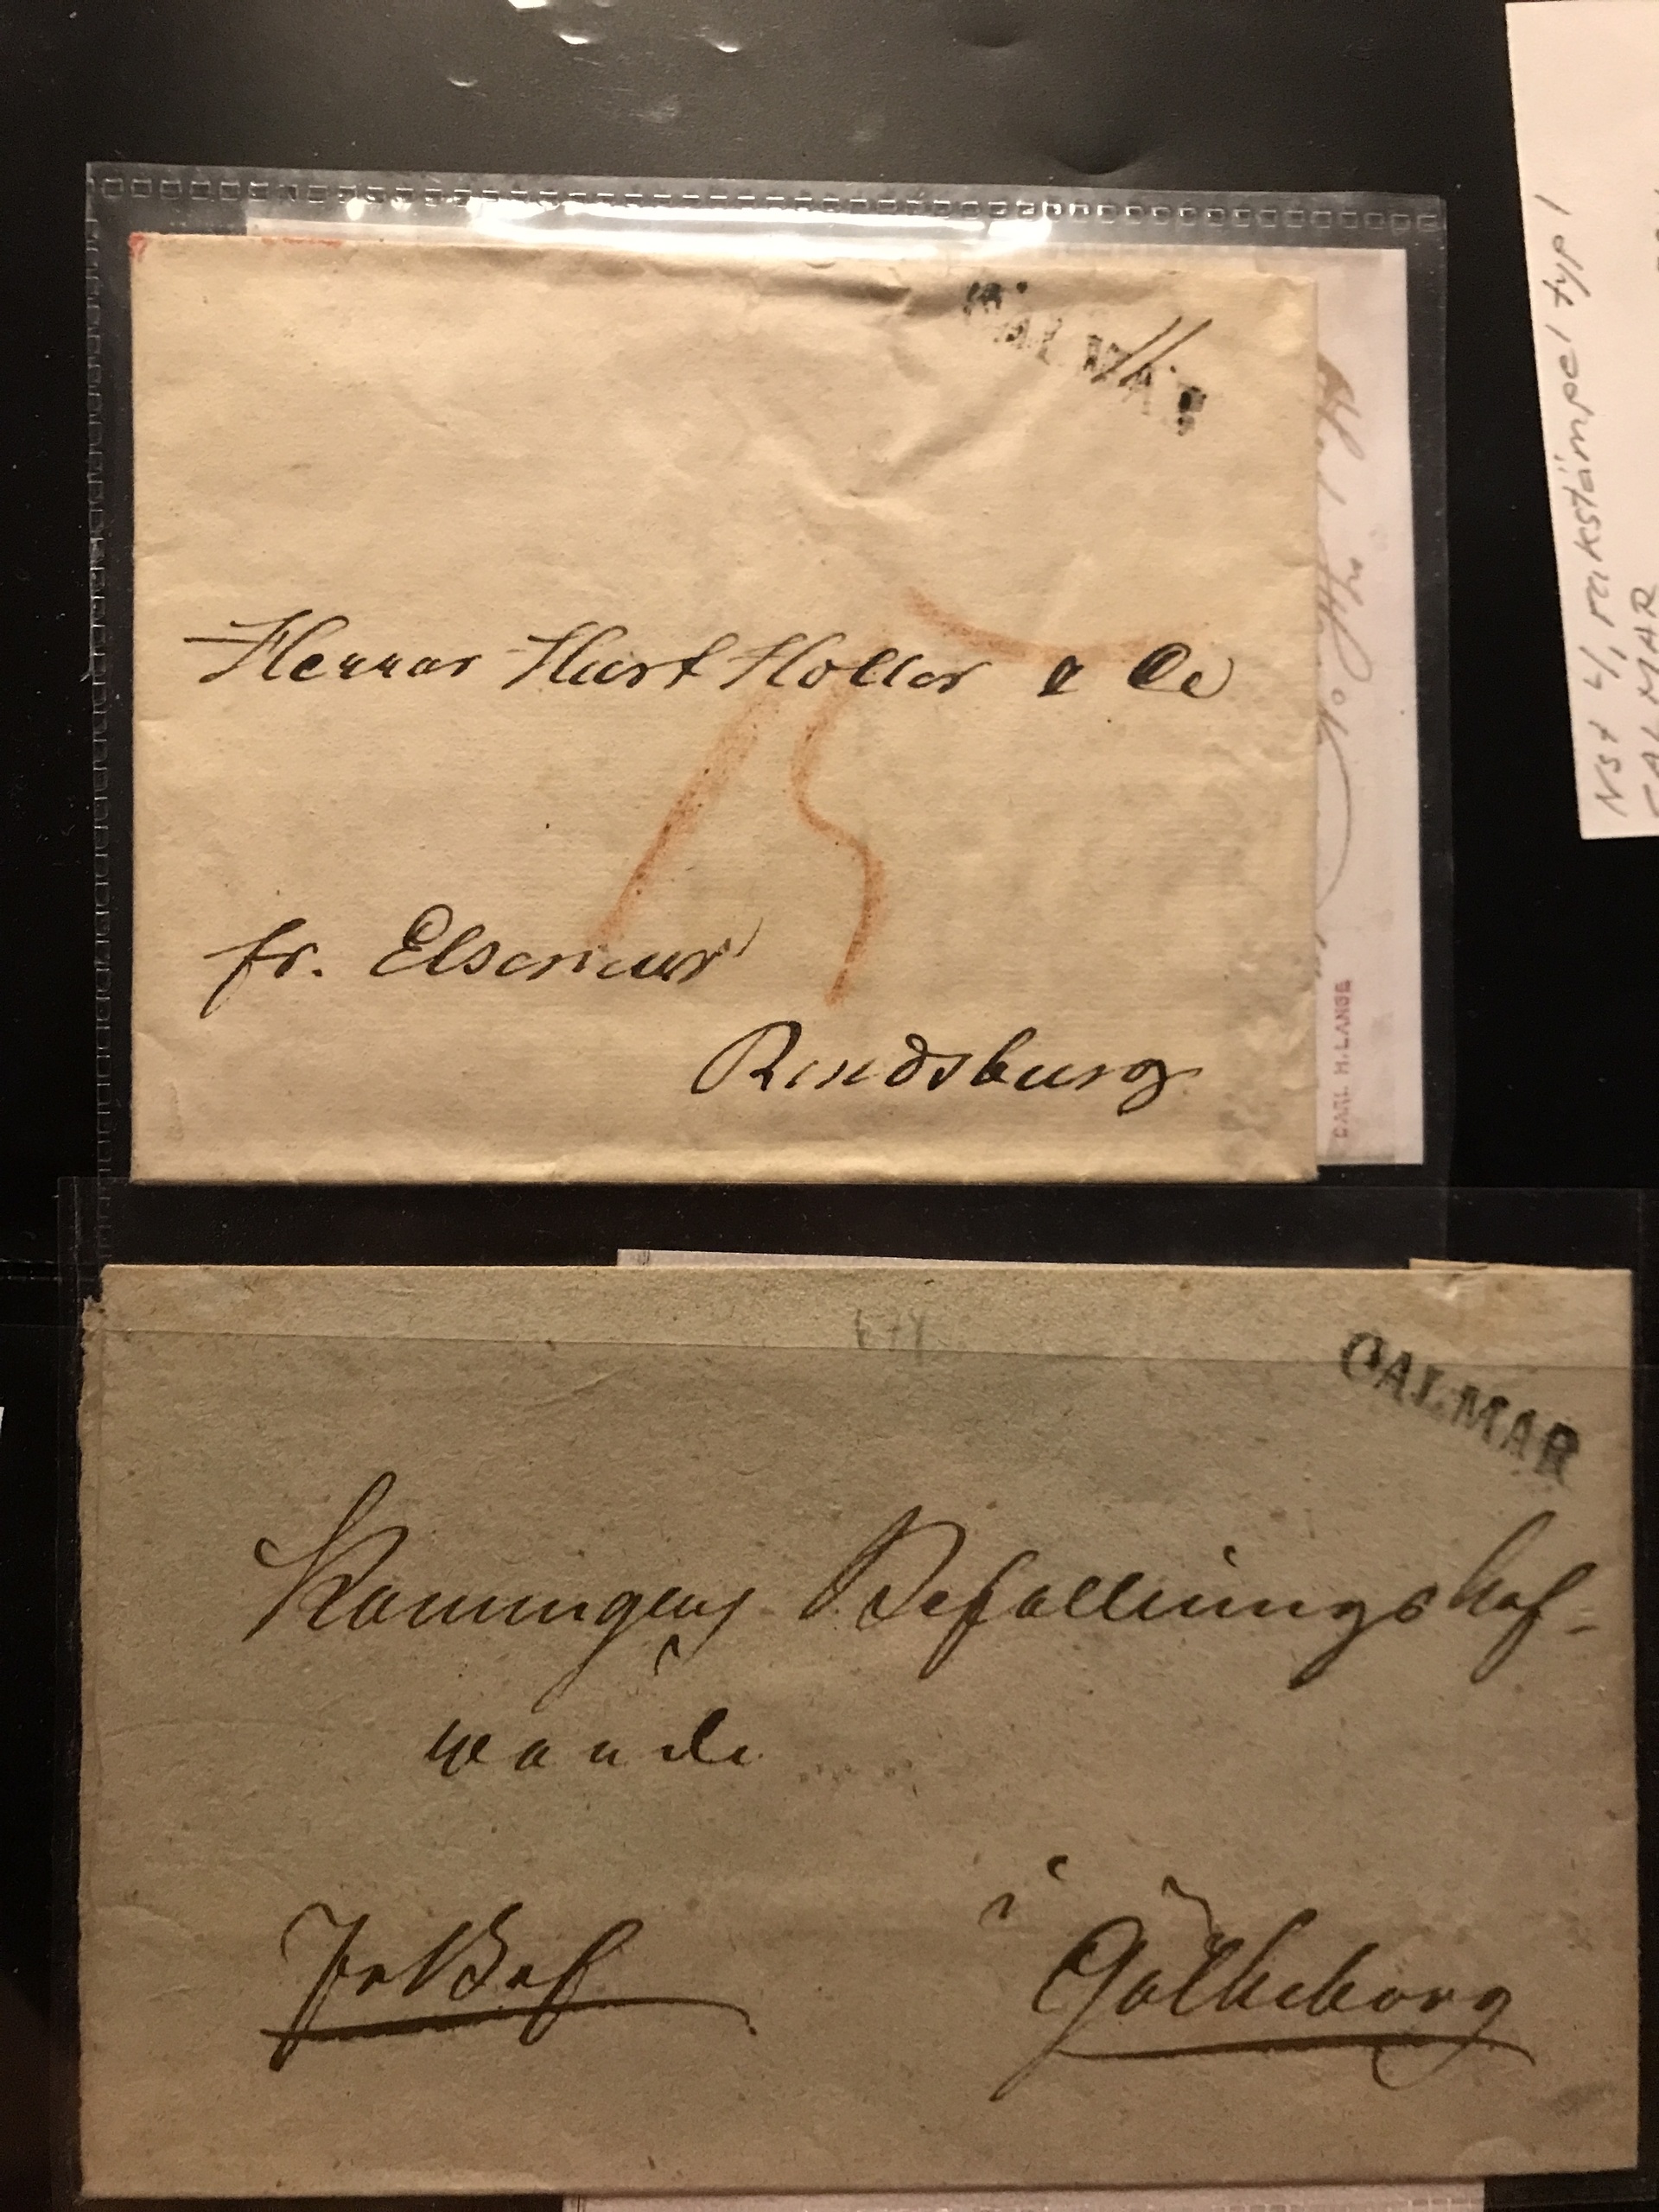 CALMAR
Herrar Hart Holler & Co
15
fr. Elseneur
Rendsburg
CARL H. LANGE
Nst 4, rakstämpel typ 1
CALMAR
CALMAR
Konungens Befallningshaf-
wande
i
Götheborg